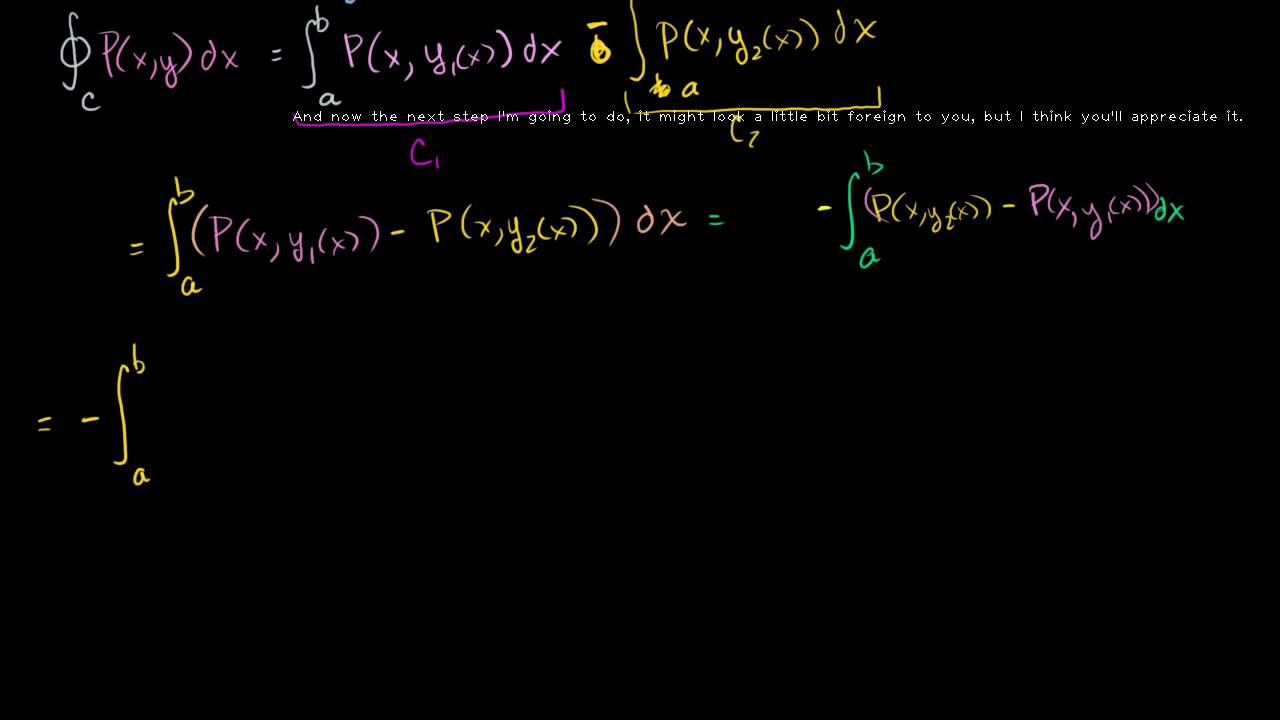 ∮_C P(x,y) dx = ∫_a^b P(x, y₁(x)) dx - ∫_a P(x, y₂(x)) dx
And now the next step I'm going to do, it might look a little bit foreign to you, but I think you'll appreciate it.
C₁ C₂
= ∫_a^b (P(x, y₁(x)) - P(x, y₂(x))) dx = - ∫_a^b (P(x, y₂(x)) - P(x, y₁(x))) dx
= - ∫_a^b